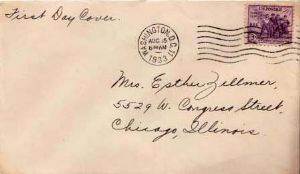 First Day Cover.
WASHINGTON, D.C. 17
AUG 15
1933
Mrs. Esther Zellmer,
5529 W. Congress Street,
Chicago, Illinois.